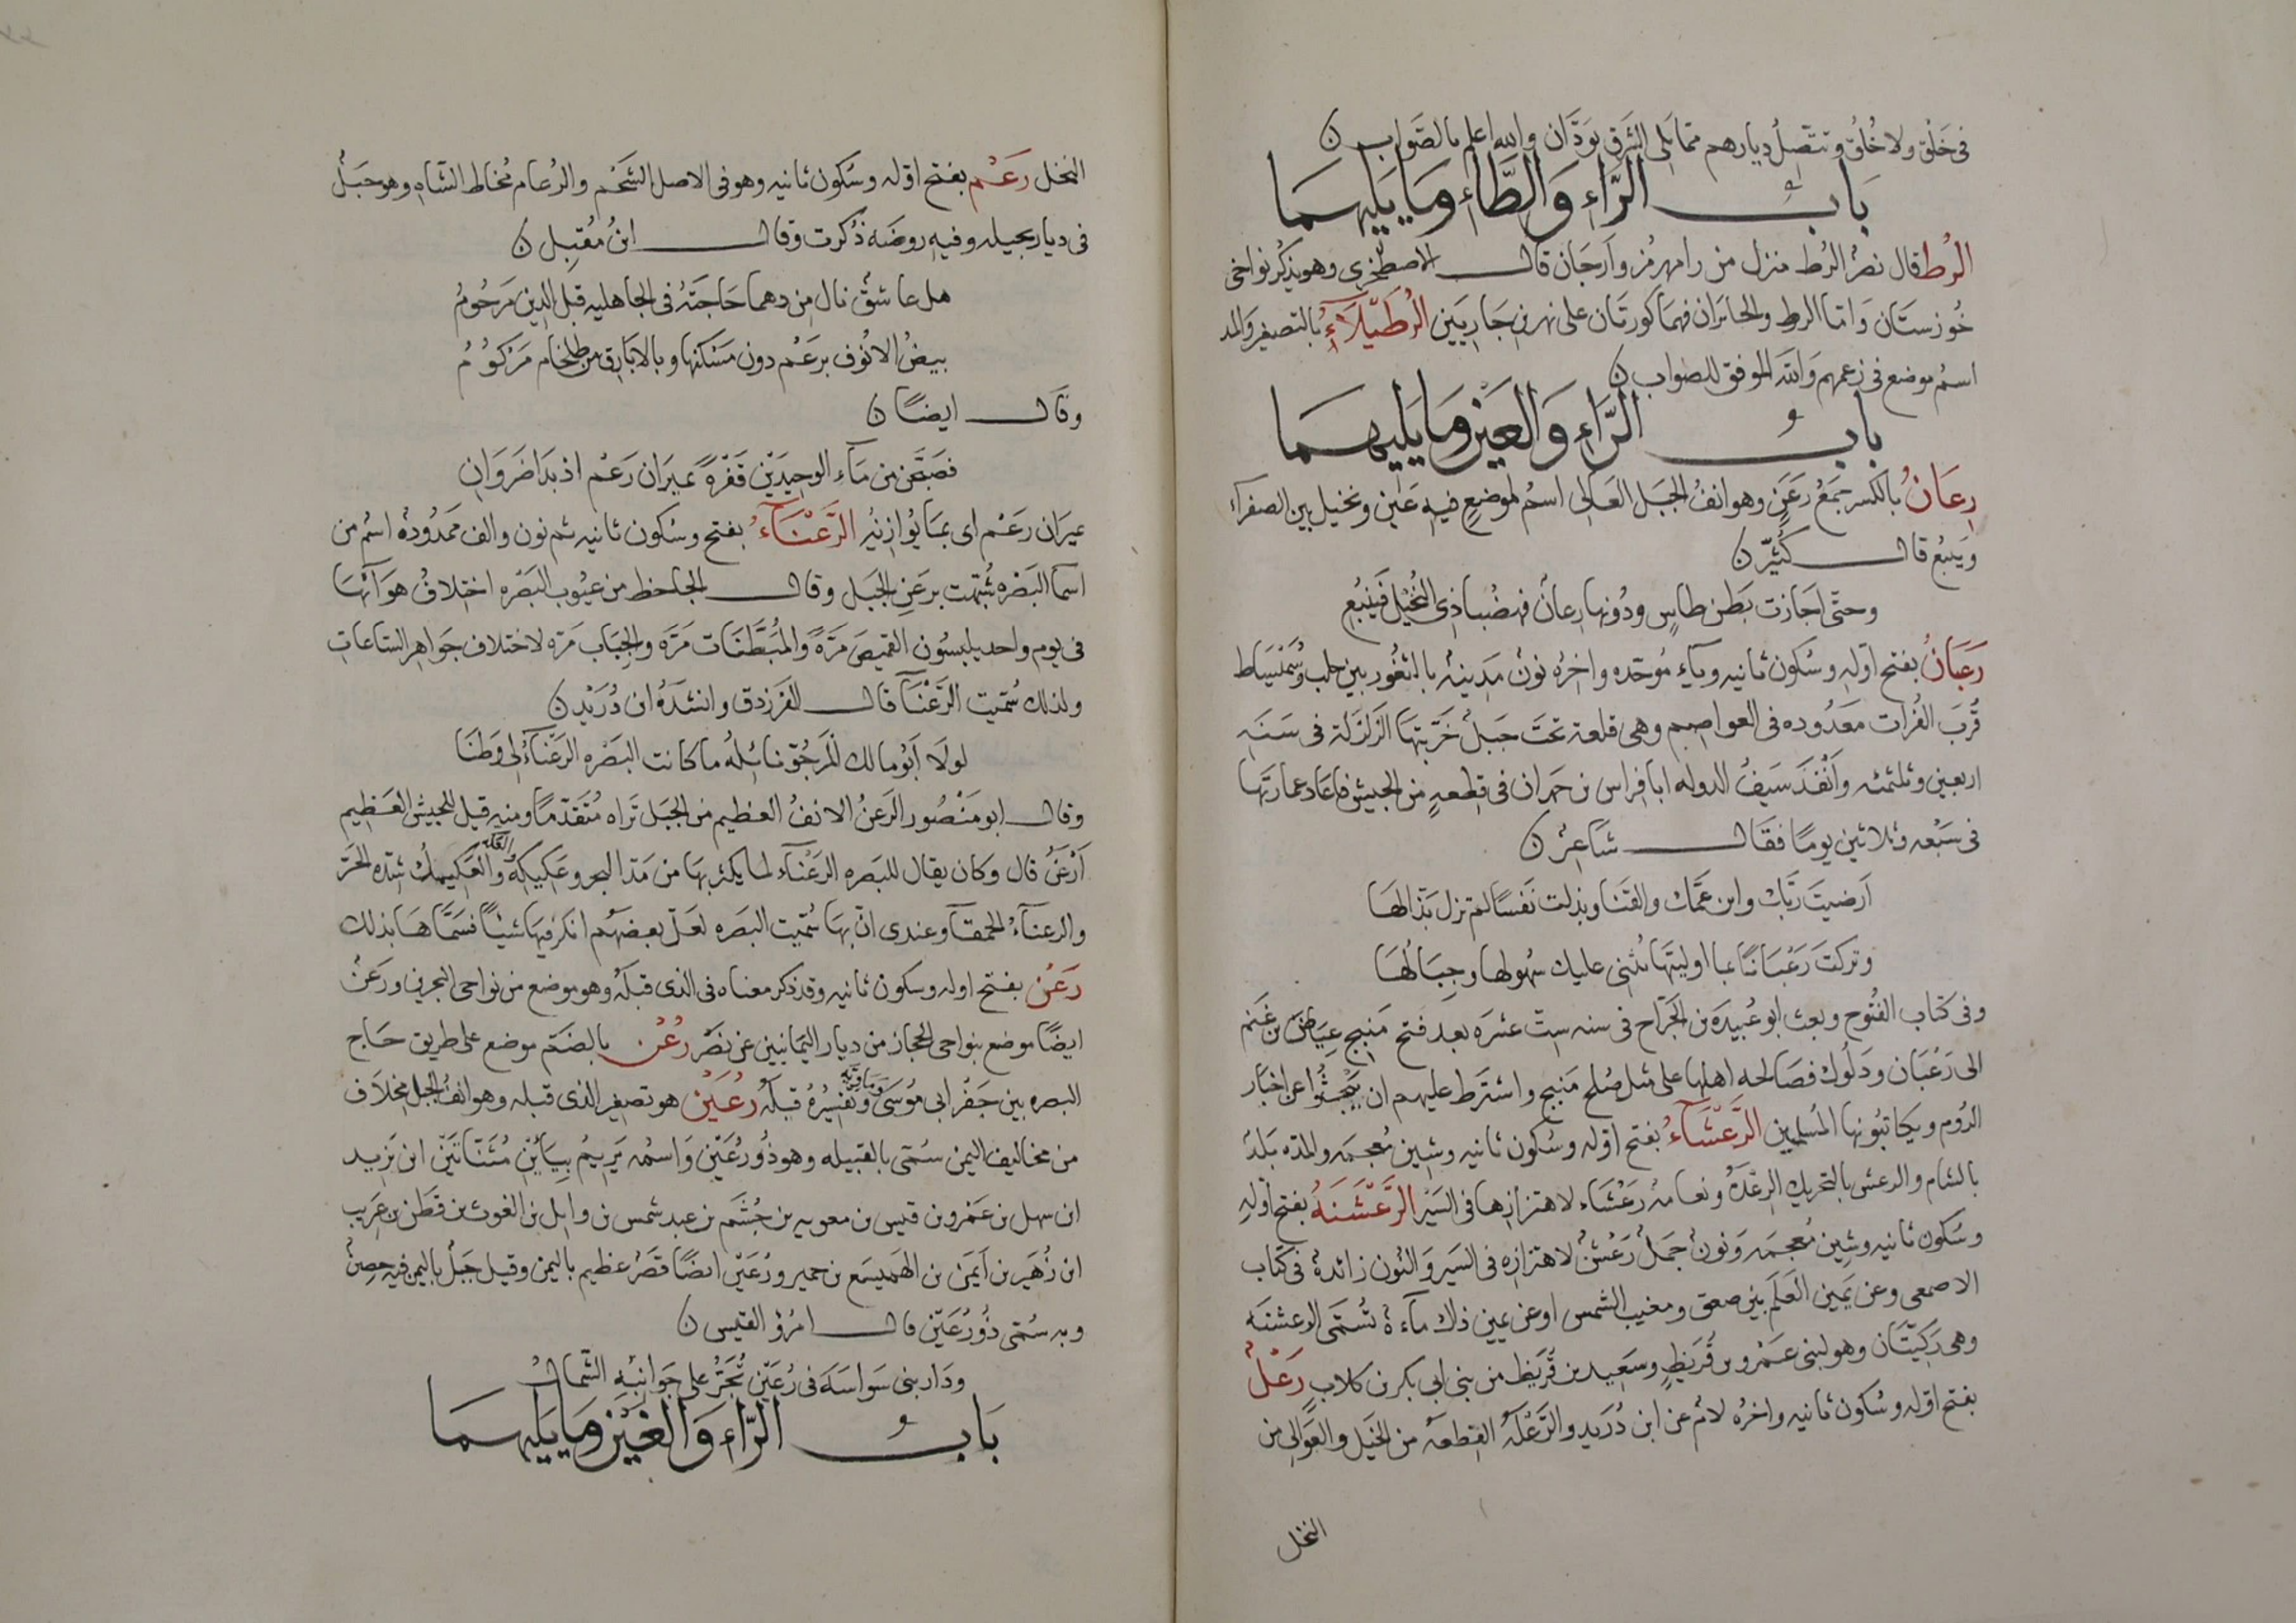 في خَلق ولا خُلُق وتتّصل ديارهم مما يلي الشرق بودّان والله اعلم بالصواب ن
بَابُ الرَّاءِ وَالطَّاءِ وَمَا يَلِيهِمَا
الرُط قال نصرٌ الرُط منزل من رامهرمز وارجان قال الاصطخري وهو يذكر نواحي
خوزستان واما الرط والخابران فهما كورتان على نهرين جاريين الرُطَيْلاَءُ بالتصغير والمد
اسمُ موضع في زعمهم والله الموفق للصواب ن
بابُ الرَّاءِ وَالعَينِ وَمَا يَلِيهِمَا
رِعَانُ بالكسر جمعُ رَعَنٍ وهو انفُ الجبل العالي اسمٌ لموضعٍ فيه عَين ونخيل بين الصفراء
ويَنبُع قال كُثيّر ن
وحتّى اجازت بَطن طاسٍ ودُونها رعانٌ فهضُبا ذي النُخيل فينبُعِ
رَعبَانُ بفتح اوّله وسُكون ثانيه وباءٍ مُوحّده واخرُه نونٌ مَدينةٌ بالثغُور بين حلب وسُمَيْسَاط
قُربَ الفُرات معدُوده في العواصم وهي قلعة تحتَ جبلٌ خرّبتها الزلزلة في سَنَه
اربعين وثلثمئه وانفَذَ سَيفُ الدوله ابا فِراس بن حمدان في قطعه من الجيش فاعاد عمارتَها
في سبعه وثلاثين يومًا فقال شَاعِرٌ ن
اَرضيتَ ربّك وابن عمّك والقنا وبذلت نَفسًا لم تزل بذّالهَا
وتركتَ رَعْبَانًا بما اوليتَها تُثنى عليك سُهولها وجِبَالُهَا
وفي كتاب الفُتُوح وبعث ابو عُبيدَه بن الجَرّاح في سنه ست عشرَه بعد فتح منبج عِيَاضَ بن غَنم
الى رَعْبَان ودَلُوك فصَالحه اهلها على مثل صُلح منبج واشتَرط عليهم ان يَبحثُوا عن اخبَار
الرُوم ويكاتبُوا بها المُسلمين الرَّعْشَاءُ بفتح اوّله وسُكون ثانيه وشين مُعجمه والمدّه بَلدٌ
بالشام والرعش بالتحريك الرِعْدَةُ ونعامةٌ رَعْشَاء لاهتزازها في السَير الرَّعْشَنَهُ بفتح اوّلهِ
وسُكون ثانيه وشين مُعجمه ونونٌ جملٌ رَعْشَنٌ لاهتزازه في السَير والنُون زائدةٌ في كتاب
الاصمعي وعن يَمين العَلَم بين صعق ومغيب الشمس او عن يمين ذلك مآءةٌ تُسمّى الرعشنَه
وهي رَكيّتَان وهو لبني عَمرو بن قُرَيظٍ وسَعيد بن قُرَيظ من بني ابي بكر بن كلاب رَعْلٌ
بفتح اوّله وسُكون ثانيه واخرُه لامٌ عن ابن دُرَيد والرَّعْلَهُ القطعهُ من الخيل والعَوالي من
النخل
النخل رَعْم بفتح اوّله وسُكون ثانيه وهو في الاصل الشحْم والرُعام مُخاط الشاه وهو جبَلٌ
في ديار بجيله وفيه روضَه ذُكرت وقال ابنُ مُقبِل ن
هل عاشقٌ نال من دهما حَاجتَهُ في الجاهليه قبل الدين مَرحُومُ
بيضُ الانُوف برعْم دون مَسكنها وبالابَارق من طِلخام مَرْكُومُ
وقال ايضًا ن
فصَبَّحن من مَآءِ الوحيدَيْن قَفْرَةً بميزان رَعْم اذ بدَا ضَروَانِ
ميزان رَعْم اي بما يُوازنُه الرَّعْنَاءُ بفتح وسُكون ثانيه ثم نون والف ممدُودهٌ اسمٌ من
اسما البَصْره شُبّهت برَعَنِ الجبَل وقال الجاحظ من عيُوب البَصْره اختلافُ هَوَآئها
في يوم واحد يلبسُون القميصَ مَرّةً والمُبَطَّنَات مَرّه والجِبَاب مَرّه لاختلاف جَواهر الساعاتِ
ولذلك سُمّيت الرَعْنَآ قال الفرزدق وانشدَهُ ابن دُرَيْدٍ ن
لولا اَبُو مالك المَرجُوّ نائِلُه ما كانت البَصْره الرَعْنَاءُ لي وَطَنَا
وقال ابو مَنْصُور الرَعنُ الانفُ العظيم من الجبَل تَراه مُتَقَدّمًا ومنه قيل للجيش العَظيم
اَرْعَنُ قال وكان يقال للبَصره الرَعْنَآء لما يكثر بهَا من مَدّ البحر وعَكيكِهُ والعَكيكُ شدّه الحَرّ
والرعنآءُ الحمقآ وعندي انّ بهَا سُمّيت البصَره لعَلّ بعضَهُم انكر فيهَا شيئًا فسَمّاهَا بذلك
رَعْن بفتح اوله وسكون ثانيه وقد ذكر معناه في الذي قبلَه وهو موضع من نواحي البحرين ورَعنٌ
ايضًا موضع بنواحي الحجاز من ديار اليمانيين عن نَصْر رُعْن بالضَّم موضع على طريق حَاج
البصره بين جَفْر ابي مُوسَى وماويه وتفسيرُهُ قبلَه رُعَيْن هو تصغير الذي قبله وهو انفُ الجبل مخلاَف
من مخاليف اليمن سُمّي بالقبيله وهو ذُو رُعَيْن واسمُه يَريمُ بيَائَيْنِ مُثنَّاتَيْن ابن زَيد
ابن سهل بن عَمْرو بن قيس بن معويه بن جُشَم بن عبد شمس بن وايل بن الغوث بن قطَن بن عَريب
ابن زُهَير بن اَيمَن بن الهَميسَع بن حمير ورُعَين ايضًا قصرٌ عظيم باليمن وقيل جَبلٌ باليمن فيه حِصنٌ
وبه سُمّي ذُو رُعَيْن قال امرؤ القيس ن
ودَار بني سَواسَه في رُعَيْن تُجَرُّ على جَوانبِه الشمالُ
بَابُ الرَّاءِ وَالغَينِ وَمَا يَلِيهِمَا